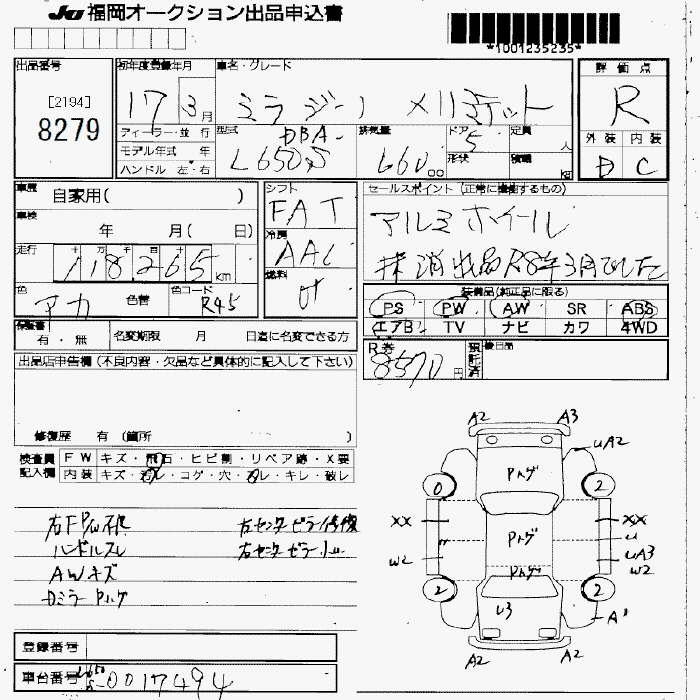 JU 福岡オークション出品申込書
*1001235235*
出品番号
[2194]
8279
初年度登録年月
17 3月
ディーラー・並行
モデル年式 年
ハンドル 左・右
車名・グレード
ミラ ジーノ メリミケット
型式 DBA-
L650S
排気量
660cc
ドア 5
形状
定員 人
積載 kg
評価点
R
外装 内装
D C
車歴 自家用( )
車検 年 月( 日)
走行 十 万 千 百 十
118265 km
色 アカ 色替 色コード R45
シフト
FAT
冷房
AAC
燃料
セールスポイント (正常に機動するもの)
アルミホイール
抹消出品R8年3月でした
装備品(純正品に限る)
PS PW AW SR ABS
エアB TV ナビ カワ 4WD
保証書 有・無 名変期限 月 日迄に名変できる方
R券 8570円 預託済 後日品
出品店申告欄 (不良内容・欠品など具体的に記入して下さい)
修復歴 有 (箇所 )
検査員記入欄
FW キズ・飛石・ヒビ割・リペア跡・X要
内装 キズ・汚レ・コゲ・穴・スレ・キレ・破レ
右センターピラー修復
ハンドルスレ
AWキズ
A2 A3
uA2
Pトゲ
0 2
XX Pトゲ XX
u
W2 uA3
W2
Pトゲ
2 2
U3
A'
A2 A2
登録番号
車台番号 L650S-0017494